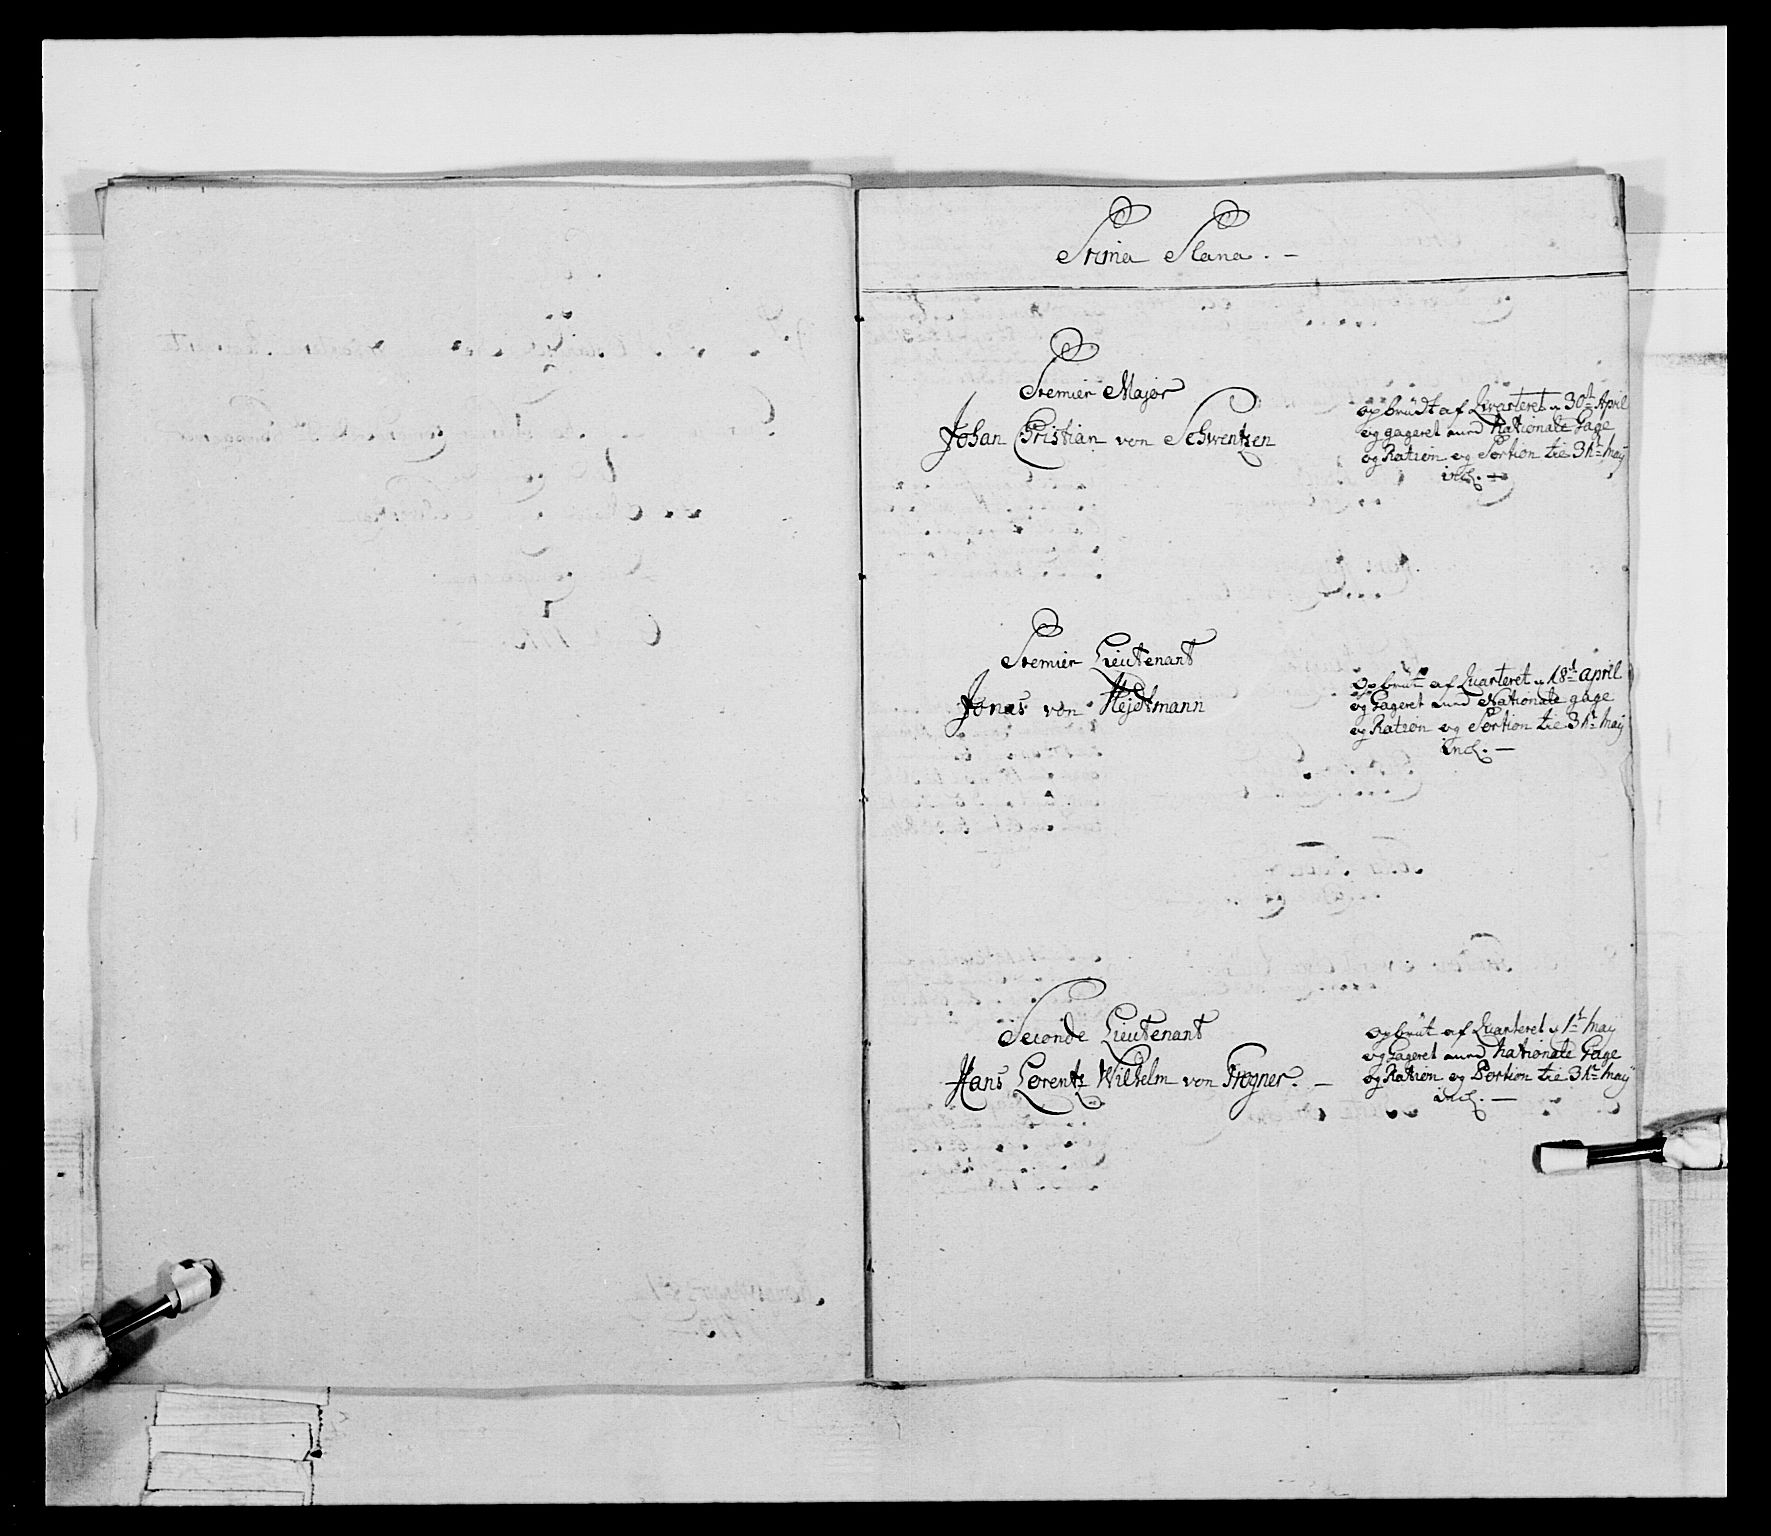 Prima Plana. –
Premier Major
Johan Christian von Schwentzen
opbrudt af Qvarteret d 30t April
og gageret med Nationale Gage
og Ration og Portion til 31t May
incl. –
Premier Lieutenant
Jonas von Hejdtmann
Opbrüt af Quarteret d 18t april
og Gageret med Nationale gage
og Ration og Portion til 31t May
incl. –
Seconde Lieutenant
Hans Lorentz Wilhelm von Progner. –
Opbrüt af Quarteret d 1t May
og Gageret med Nationale Gage
og Ration og Portion til 31t May
incl. –